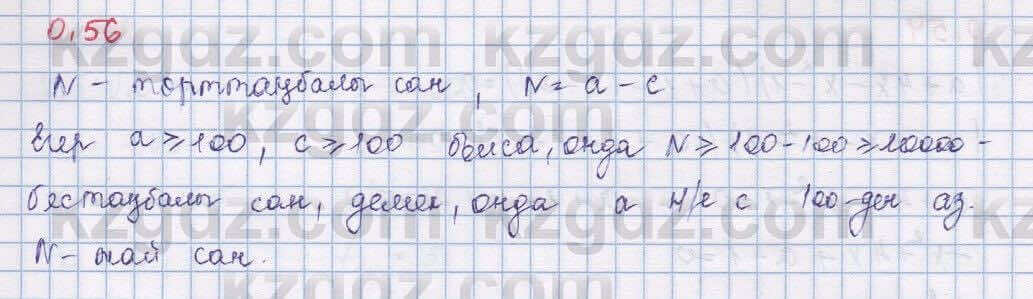 0.56
N - төрттаңбалы сан, N = a - c
Егер a ≥ 100, c ≥ 100 болса, онда N ≥ 100 - 100 ≥ 10000 -
бестаңбалы сан, демек, онда a н/е c 100-ден аз.
N - жай сан.